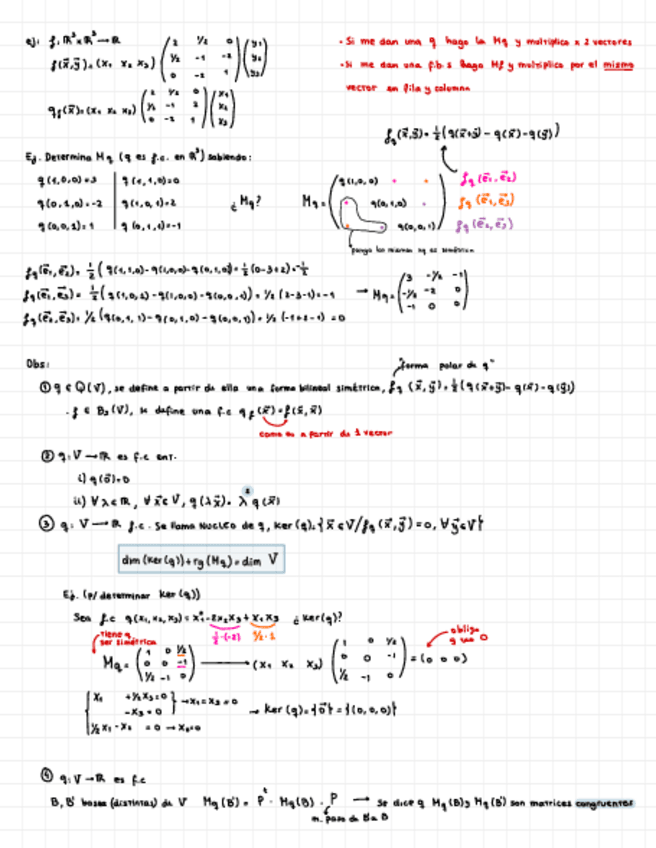 ej: f: ℝ³×ℝ³ → ℝ
f(x⃗,y⃗) = (x₁ x₂ x₃) (2 1/2 0; 1/2 -1 -2; 0 -2 1) (y₁; y₂; y₃)
q_f(x⃗) = (x₁ x₂ x₃) (2 1/2 0; 1/2 -1 2; 0 -2 1) (x₁; x₂; x₃)
· Si me dan una q hago la Mq y multiplico x 2 vectores
· Si me dan una f.b.s hago Mf y multiplico por el mismo
vector en fila y columna
f_q(x⃗,y⃗) = 1/2 (q(x⃗+y⃗) - q(x⃗) - q(y⃗))
Ej. Determina Mq (q es f.c. en ℝ³) sabiendo:
q(1,0,0)=3 | q(1,1,0)=0
q(0,1,0)=-2 | q(1,0,1)=2
q(0,0,1)=1 | q(0,1,1)=-1
¿Mq?
Mq = (q(1,0,0) q(0,1,0) q(0,0,1))
f_q(e⃗₁,e⃗₂)
f_q(e⃗₁,e⃗₃)
f_q(e⃗₂,e⃗₃)
pongo los mismos xq es simétrica
f_q(e⃗₁,e⃗₂) = 1/2 (q(1,1,0) - q(1,0,0) - q(0,1,0)) = 1/2 (0-3+2) = -1/2
f_q(e⃗₁,e⃗₃) = 1/2 (q(1,0,1) - q(1,0,0) - q(0,0,1)) = 1/2 (2-3-1) = -1
f_q(e⃗₂,e⃗₃) = 1/2 (q(0,1,1) - q(0,1,0) - q(0,0,1)) = 1/2 (-1+2-1) = 0
→ Mq = (3 -1/2 -1; -1/2 -2 0; -1 0 0)
Obs:
"forma polar de q"
① q ∈ Q(V), se define a partir de ella una forma bilineal simétrica, f_q (x⃗,y⃗) = 1/2 (q(x⃗+y⃗) - q(x⃗) - q(y⃗))
· f ∈ B₂(V), se define una f.c q_f (x⃗) = f(x⃗,x⃗)
como es a partir de 1 vector
② q: V → ℝ es f.c ent.
i) q(0⃗)=0
ii) ∀λ∈ℝ, ∀x⃗∈V, q(λx⃗) = λ² q(x⃗)
③ q: V → ℝ f.c. Se llama Nucleo de q, Ker(q) = {x⃗∈V/f_q(x⃗,y⃗)=0, ∀y⃗∈V}
dim(Ker(q)) + rg(Mq) = dim V
Ej. (p/ determinar Ker(q))
Sea f.c q(x₁,x₂,x₃) = x₁² - 2x₂x₃ + x₁x₃ ¿Ker(q)?
1/2·(-2) 1/2·1
tiene q ser simétrica
Mq = (1 0 1/2; 0 0 -1; 1/2 -1 0) → (x₁ x₂ x₃) (1 0 1/2; 0 0 -1; 1/2 -1 0) = (0 0 0)
obliga q sea 0
{ x₁ + 1/2x₃=0
-x₃=0 } → x₁=x₃=0
1/2x₁ - x₂ = 0 → x₂=0
→ Ker(q) = {0⃗} = {(0,0,0)}
④ q: V → ℝ es f.c
B, B' bases (distintas) de V Mq(B') = Pᵗ · Mq(B) · P → Se dice q Mq(B) y Mq(B') son matrices congruentes
m. paso de B' a B